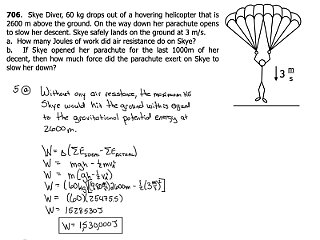 706. Skye Diver, 60 kg drops out of a hovering helicopter that is
2600 m above the ground. On the way down her parachute opens
to slow her descent. Skye safely lands on the ground at 3 m/s.
a. How many Joules of work did air resistance do on Skye?
b. If Skye opened her parachute for the last 1000m of her
decent, then how much force did the parachute exert on Skye to
slow her down?
↓3 m/s
5 ⓐ Without any air resistance, the maximum KE
Skye would hit the ground with is equal
to the gravitational potential energy at
2600m.
W = Δ(ΣE - ΣE)
W = mgh - ½mv²
W = m(gh - ½v²)
W = (60kg)[(9.80)2600m - ½(3)²]
W = (60)(25475.5)
W = 1528530J
W = 1,530,000J